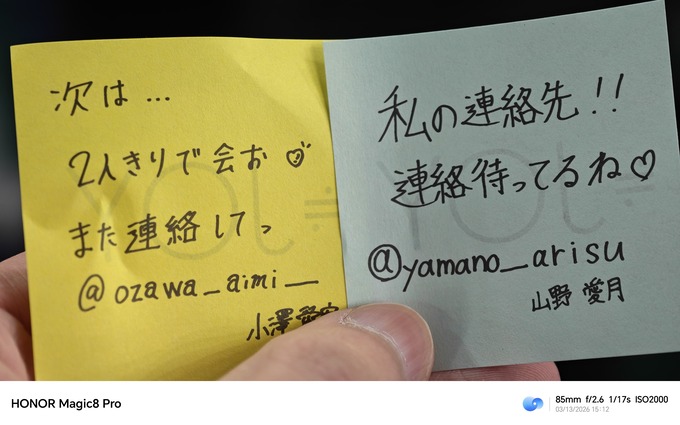 次は…
2人きりで会お♡
また連絡してっ
@ozawa_aimi__
小澤
私の連絡先!!
連絡待ってるね♡
@yamano_arisu
山野 愛月
HONOR Magic8 Pro
85mm f/2.6 1/17s ISO2000
03/13/2026 15:12